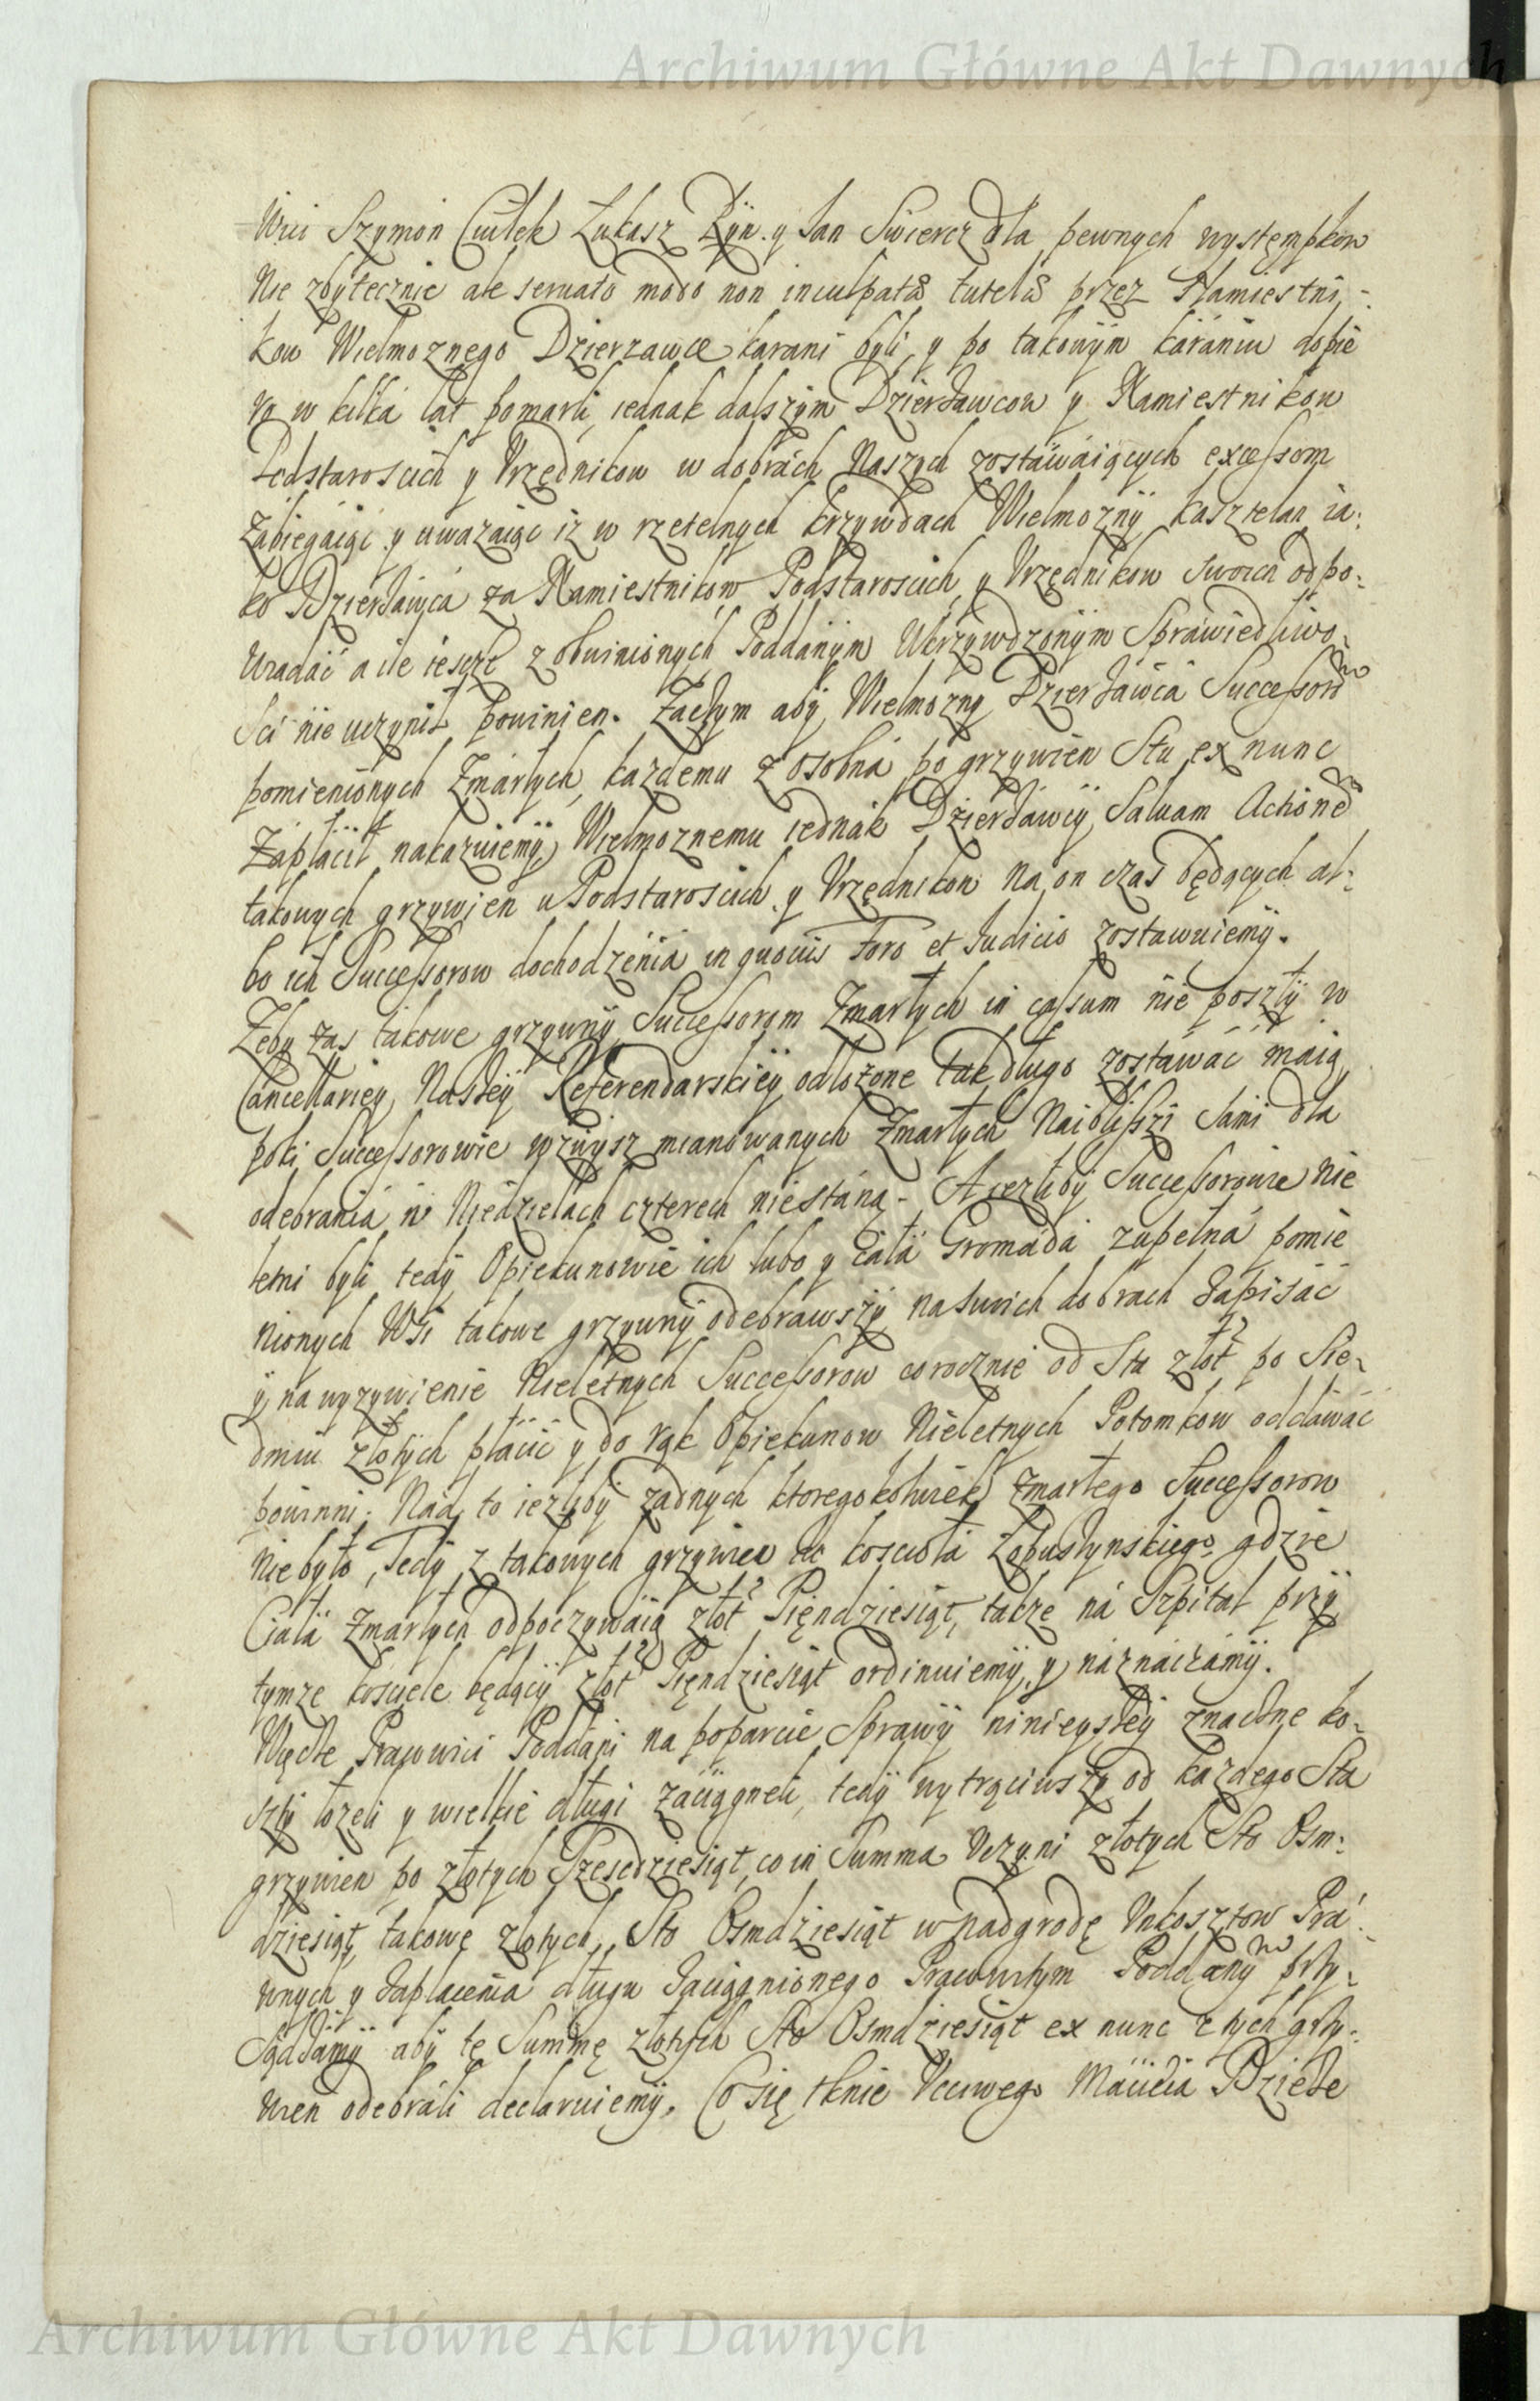 Archiwum Główne Akt Dawnych
wici Szymon Ciułek Łukasz Dyn. y Jan Swiercz dla pewnych występkow
Nie zbytecznie ale seruato modo non inculpatæ tutelæ przez Namiestni-
kow Wielmoznego Dzierzawce karani byli, y po takowym karaniu dopie
ro w kilka lat pomarli, iednak dalszym Dzierżawcow y Namiestnikow
Podstaroscich y Vrzędnikow w dobrach Naszych zostawaiących excessom
Zabiegaiąc y uwazaiąc iz w rzetelnych krzywdach Wielmozny kasztelan ia:
ko Dzierżawca za Namiestnikow Podstaroscich y Vrzędnikow swoich odpo:
wiadać a ile iescze z obwinionych Poddanym Ukrzywdzonym Sprawiedliwo-
sci nie uczynił powinien. Zaczym aby Wielmozny Dzierżawca Successorom
pomienionych Zmarłych, kazdemu z osobna po grzywien Stu ex nunc
Zapłacił nakazuiemy, Wielmoznemu iednak Dzierżawcy Saluam Actionem
takowych grzywien u Podstaroscich y Vrzędnikow na on czas będących al:
bo ich Successorow dochodzenia in quovis Foro et Iudicio zostawuiemy.
Zeby zas takowe grzywny Successorom Zmarłych in cassum nie poszły w
Cancellariey Naszey Referendarskiey odłozone tak długo zostawać maią
poki Successorowie wzwysz mianowanych Zmarłych Naiblissi sami dla
odebrania w Niedzielach czterech niestaną. A iezliby Successorowie Nie
letni byli tedy Opiekunowie ich lubo y cała Gromada zupełna pomie
nionych Wśi takowe grzywny odebrawszy na swoich dobrach Zapisać
y na wyzywienie Nieletnych Successorow corocznie od Stu złotʸᶜʰ po Sie-
dmiu złotych płacić y do rąk Opiekunow Nieletnych Potomkow oddawać
powinni. Nad to iezliby zadnych ktoregokolwiek zmarłego Successorow
nie było, Tedy z takowych grzywien do koscioła Łopustynskiego gdzie
Ciała Zmarłych odpoczywaią złotʸᶜʰ Pięndziesiąt, także na Szpital przy
tymze kosciele będący złotʸᶜʰ Pięndziesiąt ordinuiemy y naznaczamy.
Wędle Pracowici Poddani na poparcie Sprawy ninieyszey znaczne ko-
szty łozeli y wielkie długi zaciągneli, tedy wytrąciwszy od kazdego Sta
grzywien po złotych Szescdziesiąt, co in Summa vczyni złotych Sto Osm:
dziesiąt, takowe złotych Sto Osmdziesiąt w nadgrodę Vnkosztow Pra:
wnych y Zapłacenia długu Zaciągnionego Pracowitym Poddanym przy-
sądzamy aby tę Summę złotych Sto Osmdziesiąt ex nunc z tych grzy:
wien odebrali declaruiemy. Co się tknie Vcciwego Macieia Dziede
Archiwum Główne Akt Dawnych